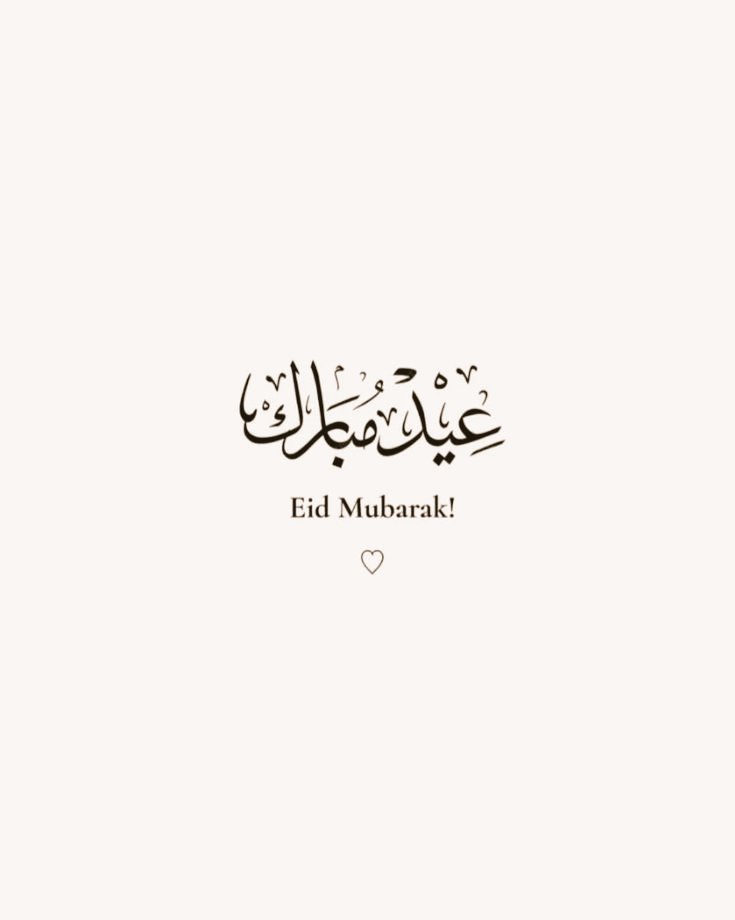 عِيْدٌ مُبَارَك
Eid Mubarak!